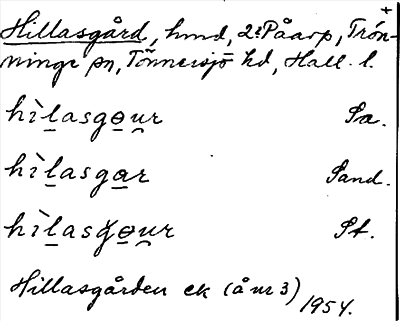 +
Hillasgård, hmd, 2:Påarp, Trön-
ninge sn, Tönnersjö hd, Hall. l.
hìl̲asgo̲u̯r Sa.
hìl̲asga̲r Sand.
hìl̲asgo̲u̯r St.
Hillasgården ek (å nr 3) 1954.